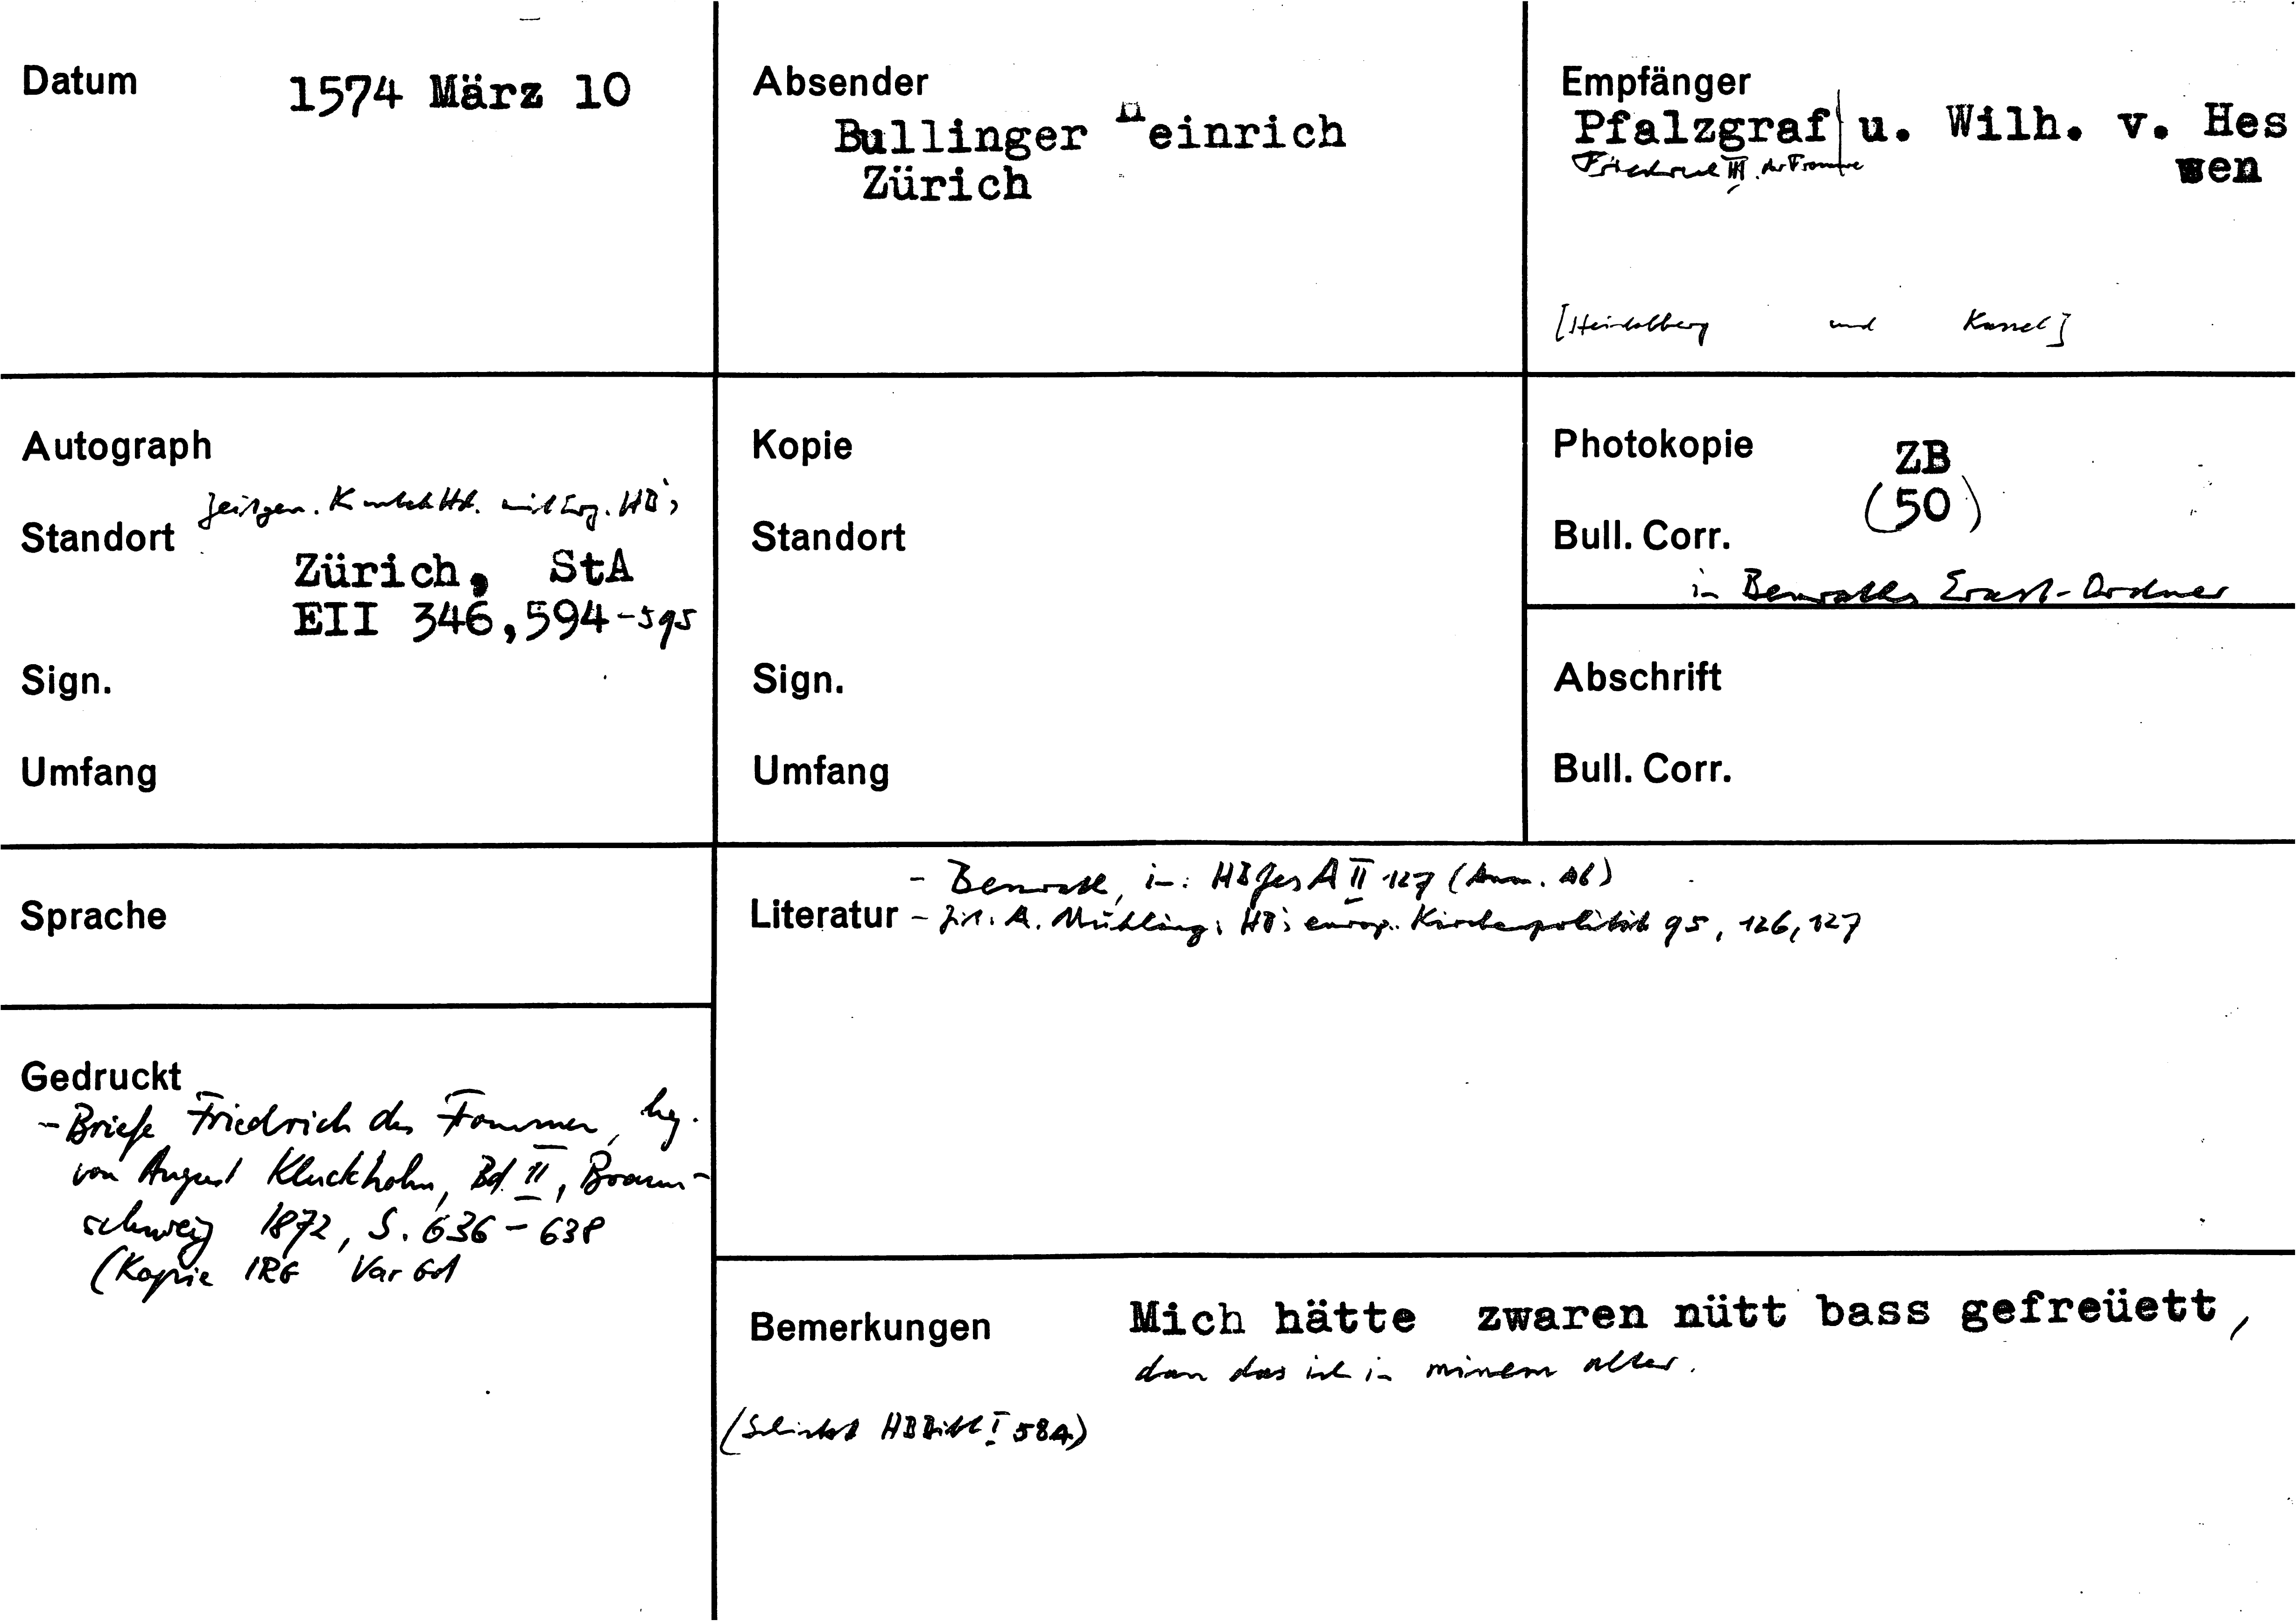 Datum 1574 März 10
Absender
Bullinger Heinrich
Zürich
Empfänger
Pfalzgraf u. Wilh. v. Hes
sen
Friedrich III. der Fromme
[Heidelberg und Kassel]
Autograph
zeitgen. mit Erg. HB's
Standort
Zürich, StA
EII 346,594-595
Sign.
Umfang
Kopie
Standort
Sign.
Umfang
Photokopie ZB
(50)
Bull. Corr.
in Benraths Ernst-Ordner
Abschrift
Bull. Corr.
Sprache
Literatur
- Benrath, in: HBGesA II 127 (Anm. 16)
- Zit. A. Mühling: HB's europ. Kirchenpolitik 95, 126, 127
Gedruckt
- Briefe Friedrich des Frommen, hg.
von August Kluckhohn, Bd. II, Braun-
schweig 1872, S. 636-638
(Kopie IRG Var 601
Bemerkungen Mich hätte zwaren nütt bass gefreüett,
dan das ich in minem alter.
(Schickt HBBibl I 584)